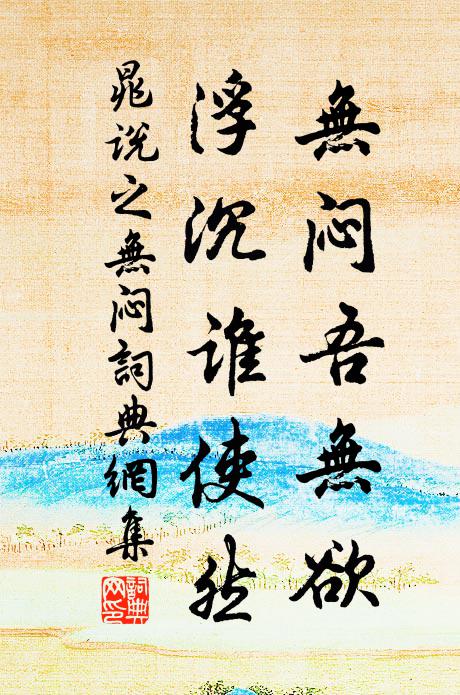 無悶吾無欲
浮沉誰使然
晁說之無悶詞典網集
詞典